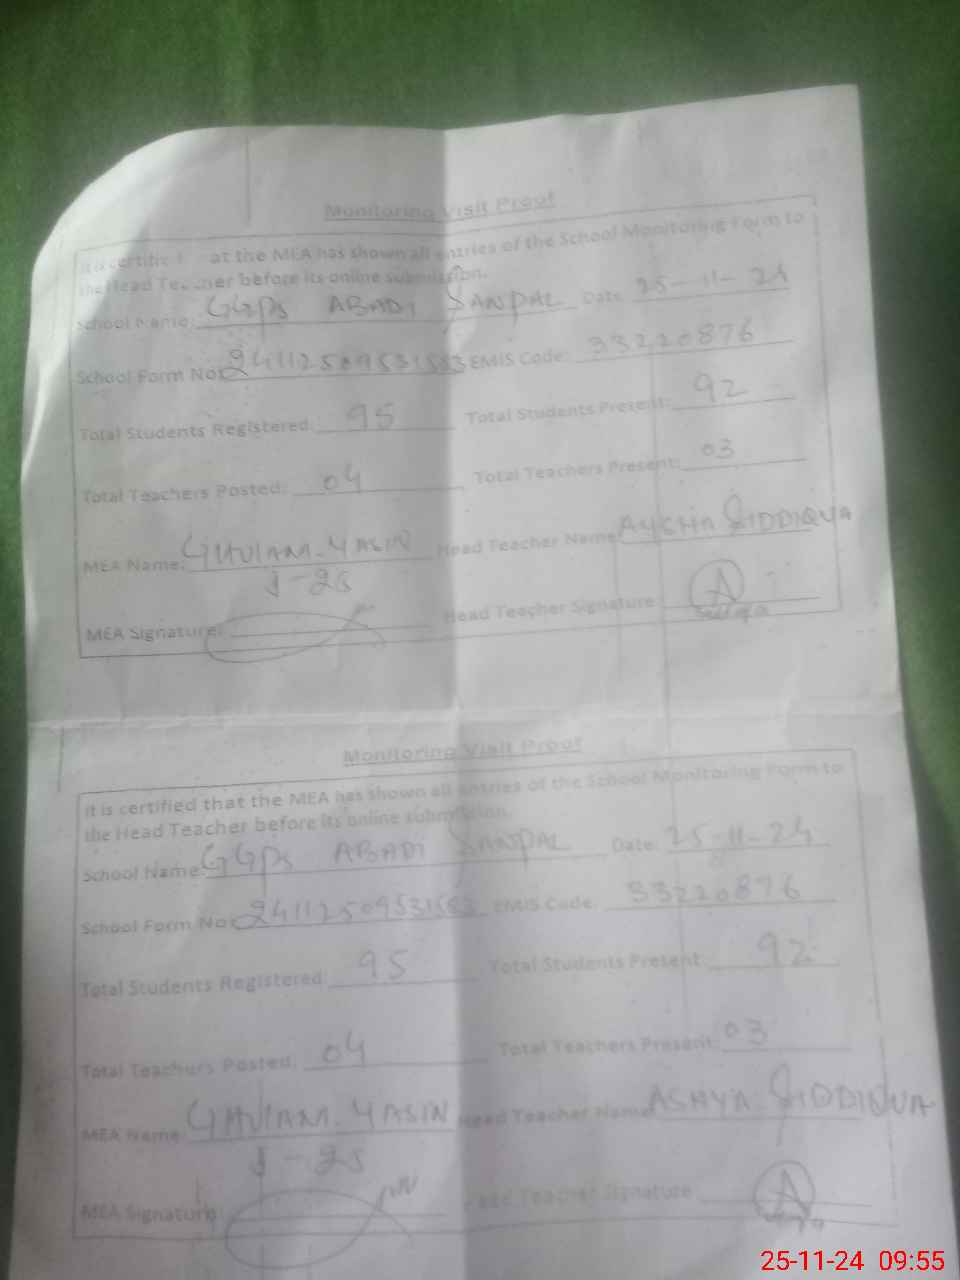 Monitoring Visit Proof
It is certified at the MEA has shown all entries of the School Monitoring Form to
the Head Teacher before its online submission.
School Name: GGPS ABADI SANPAL Date 25-11-24
School Form No: 241125095315 EMIS Code: 33220876
Total Students Registered: 95 Total Students Present: 92
Total Teachers Posted: 04 Total Teachers Present: 03
MEA Name: GHULAM-YASIN Head Teacher Name AYSHA SIDDIQUA
J-25
MEA Signature: Head Teacher Signature A
Monitoring Visit Proof
It is certified that the MEA has shown all entries of the School Monitoring Form to
the Head Teacher before its online submission.
School Name: GGPS ABADI SANPAL Date 25-11-24
School Form No: EMIS Code 33220876
Total Students Registered 95 Total Students Present 92
Total Teachers Posted: 04 Total Teachers Present: 03
MEA Name GHULAM-YASIN Head Teacher Name ASHYA SIDDIQUA
J-25
MEA Signature: Head Teacher Signature A
25-11-24 09:55